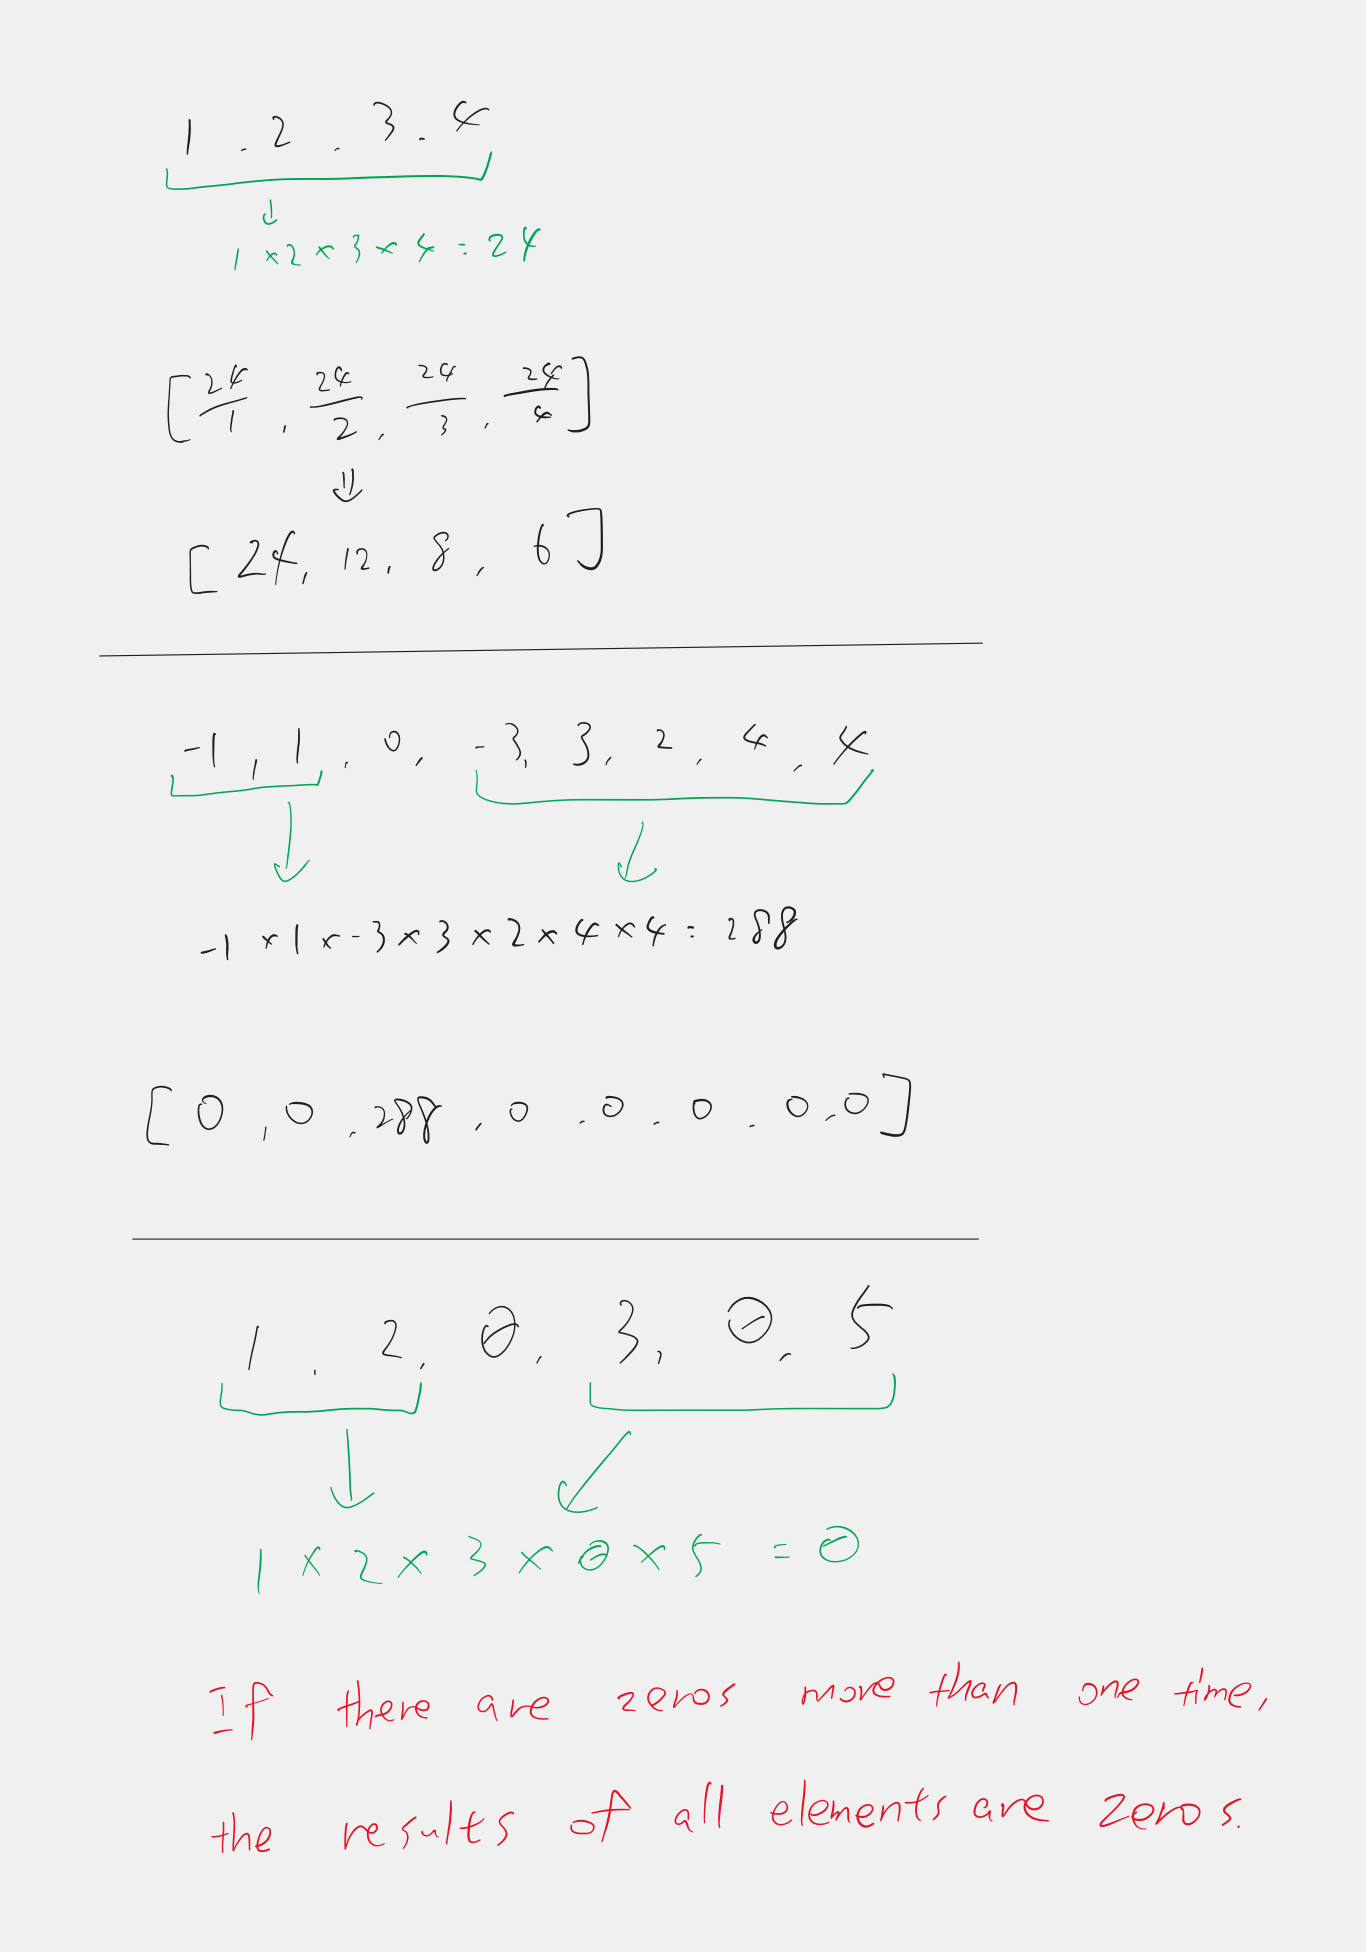 1 , 2 , 3 , 4
1 × 2 × 3 × 4 = 24
[ 24/1 , 24/2 , 24/3 , 24/4 ]
⇓
[ 24, 12, 8, 6 ]
-1, 1, 0, -3, 3, 2, 4, 4
-1 × 1 × -3 × 3 × 2 × 4 × 4 = 288
[ 0, 0, 288, 0, 0, 0, 0, 0 ]
1, 2, 0, 3, 0, 5
1 × 2 × 3 × 0 × 5 = 0
If there are zeros more than one time,
the results of all elements are zeros.